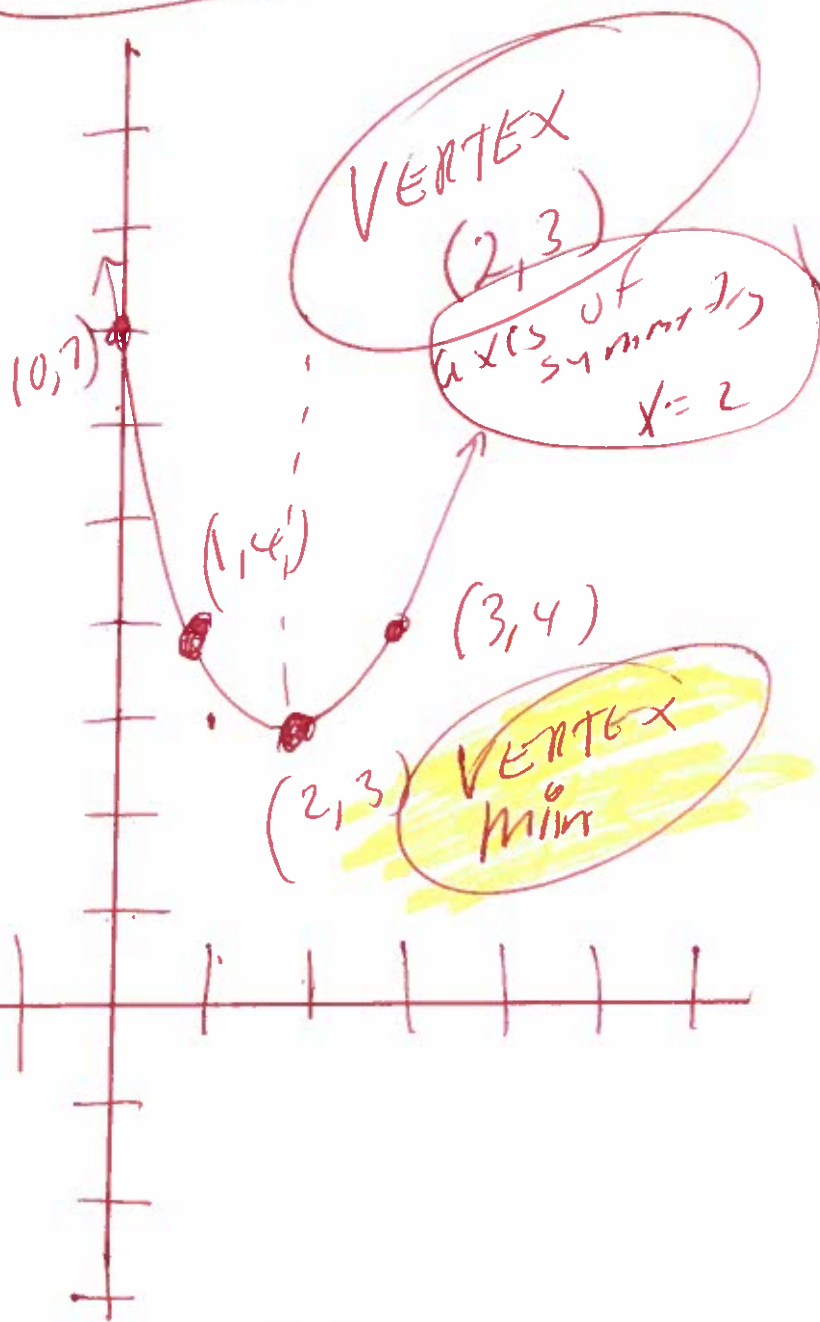 VERTEX
(2,3)
axes of
symmetry
x = 2
(0,7)
(1,4)
(3,4)
(2,3)
VERTEX
min